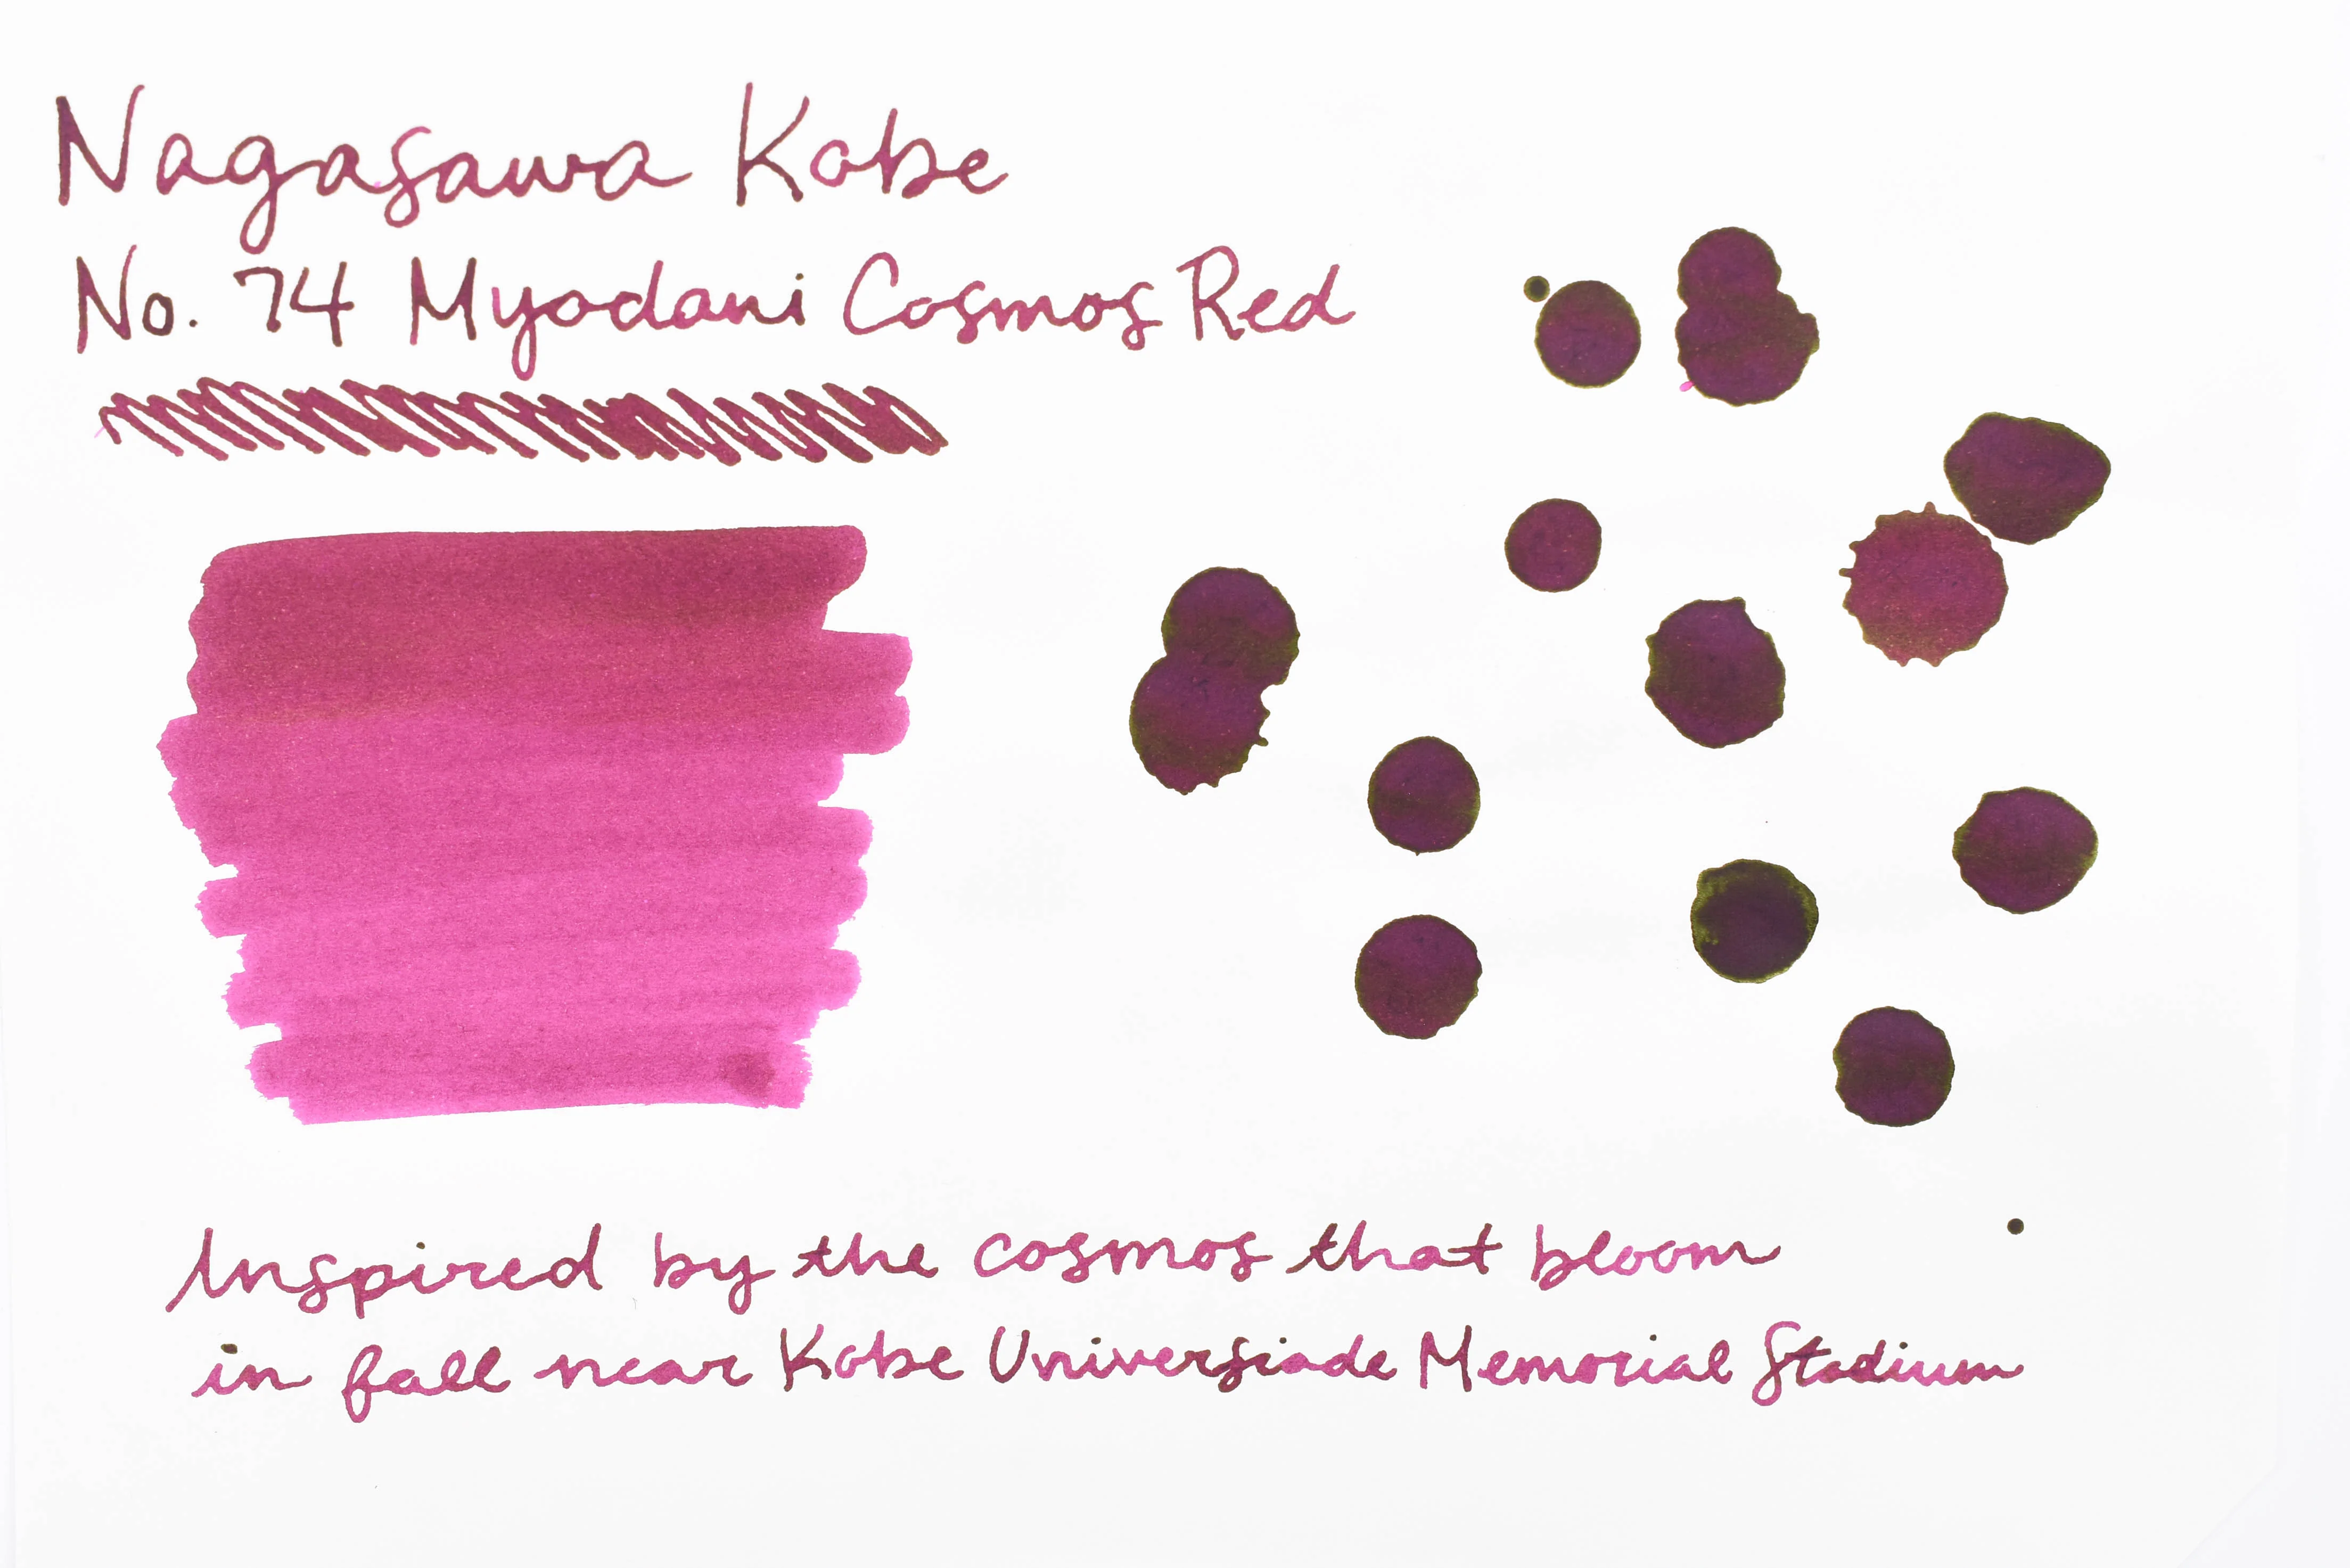 Nagasawa Kobe
No. 74 Myodani Cosmos Red
Inspired by the cosmos that bloom
in fall near Kobe Universiade Memorial Stadium